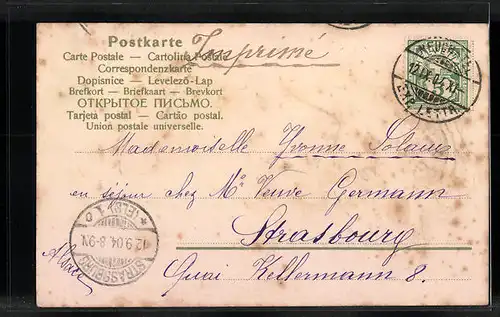 Postkarte
Imprimé
Carte Postale — Cartolina Postale
Correspondenzkarte
Dopisnice — Levelező-Lap
Brefkort — Briefkaart — Brevkort
ОТКРЫТОЕ ПИСЬМО.
Tarjeta postal — Cartão postal.
Union postale universelle.
Mademoiselle Yvonne Solans
en séjour chez Me Veuve Germann
Strasbourg
Quai Kellermann 8.
Alsace
STRASSBURG
12.9.04. 8-9N.
(ELS.) 1